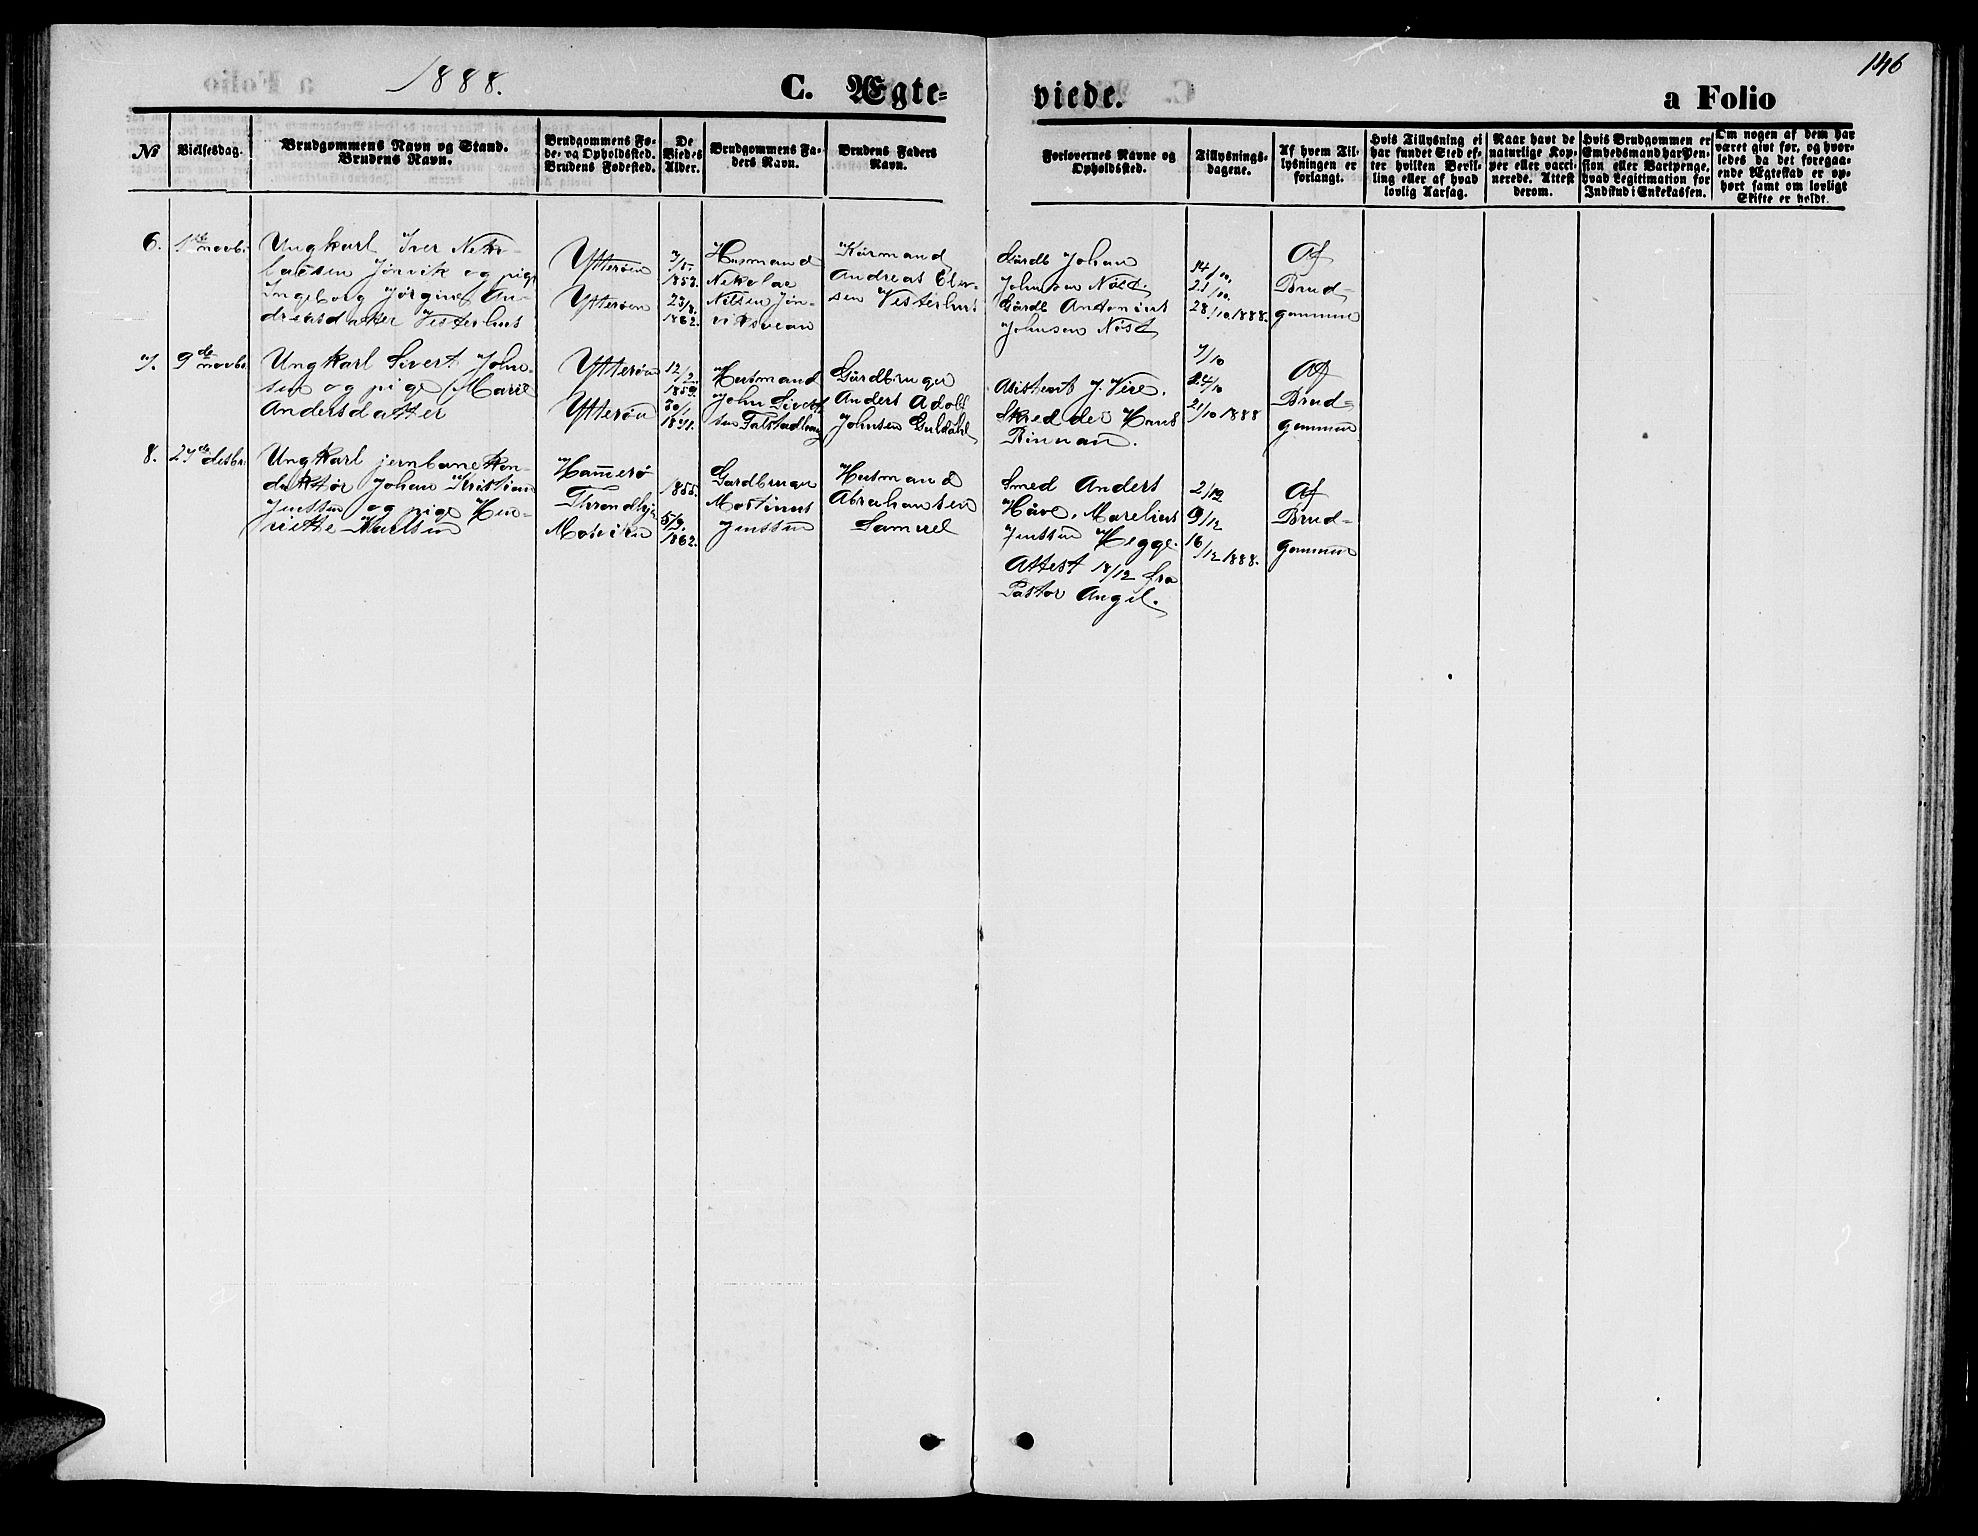 146
1888.
C. Ægte-
viede.
a Folio
No
Vielsesdag.
Brudgommens Navn og Stand.
Brudens Navn.
Brudgommens Fø-
de- og Opholdssted.
Brudens Fødested.
De
Viedes
Alder.
Brudgommens Fa-
ders Navn.
Brudens Faders
Navn.
Forlovernes Navne og
Opholdssted.
Tillysnings-
dagene.
Af hvem Til-
lysningen er
forlangt.
Hvis Tillysning ei
har fundet Sted ef-
ter hvilken Bevil-
ling eller af hvad
lovlig Aarsag.
Naar havt de
naturlige Kop-
per eller vacci-
nerede. Attest
derom.
Hvis Brudgommen er
Embedsmand har Pen-
sion eller Vartpenge,
hvad Legitimation for
Indskud i Enkekassen.
Om nogen af dem har
været givt før, og hvor-
ledes da det foregaa-
ende Ægteskab er op-
hørt samt om lovligt
Skifte er holdt.
6.
1ste novbr.
Ungkarl Iver Neko-
laisen Jørvik og pige
Ingeborg Jørgine An-
dreasdatter Vesterhus
Ytterøen
Ytterøen
1853.
23/8.
1862.
Husmand
Nekolai
Nilsen Jør-
viksvean
Kårmand
Andreas
Vesterhus
Gårdb Johan
Johnsen Nøst.
Gårdb Antonius
Johnsen Nøst
14/10.
21/10.
28/10 1888.
Af
Brud-
gommen
7.
9de novbr.
Ungkarl Sivert John-
sen og pige Marie
Andersdatter
Ytterøen
Ytterøen
12/2.
1859.
30/1
1871.
Husmand
John Sivert
sen Falstadhaug
Gårdbruger
Anders Adolf
Johnsen Guldahl
Asistent J. Vere.
Skredder
Rinnan.
7/10
21/10 1888
Af
Brud-
gommen
8.
27de desbr.
Ungkarl jernbanekon-
duktør Johan Kristian
Jenssen og pige Hen-
riette Karlsen
Hammerø
Throndhjm
Mosviken
1855.
5/9.
1862.
Gardbruger
Mortinus
Jenssen
Husmand
Abrahamsen
Samuel
Smed Anders
Håve, Marelius
Jenssen Hegge.
Attest 18/12 fra
Pastor Angel.
2/12
9/12
16/12 1888.
Af
Brud-
gommen